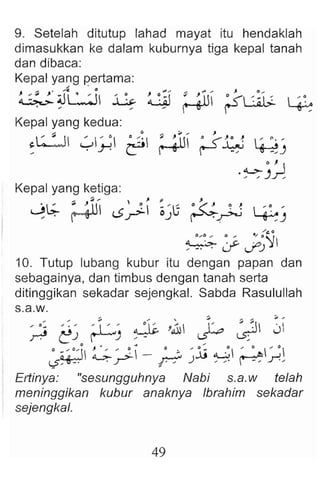 9. Setelah ditutup lahad mayat itu hendaklah
dimasukkan ke dalam kuburnya tiga kepal tanah
dan dibaca:
Kepal yang pertama:
مِنْهَا خَلَقْنَاكُمْ اَللّٰهُمَّ لَقِّنْهُ عِنْدَ الْمَسْأَلَةِ حُجَّتَهُ
Kepal yang kedua:
وَفِيْهَا نُعِيْدُكُمْ اَللّٰهُمَّ افْتَحْ اَبْوَابَ السَّمَاءِ
لِرُوْحِهِ.
Kepal yang ketiga:
وَمِنْهَا نُخْرِجُكُمْ تَارَةً أُخْرَى اَللّٰهُمَّ جَافِ
الْأَرْضَ عَنْ جَنْبَيْهِ
10. Tutup lubang kubur itu dengan papan dan
sebagainya, dan timbus dengan tanah serta
ditinggikan sekadar sejengkal. Sabda Rasulullah
s.a.w.
اَنَّ النَّبِيَّ صَلَّى اللهُ عَلَيْهِ وَسَلَّمَ رَفَعَ قَبْرَ
اِبْرَاهِيْمَ اِبْنِهِ قَدْرَ شِبْرٍ – أَخْرَجَهُ الْبَيْهَقِيُّ
Ertinya: "sesungguhnya Nabi s.a.w telah
meninggikan kubur anaknya Ibrahim sekadar
sejengkal.
49